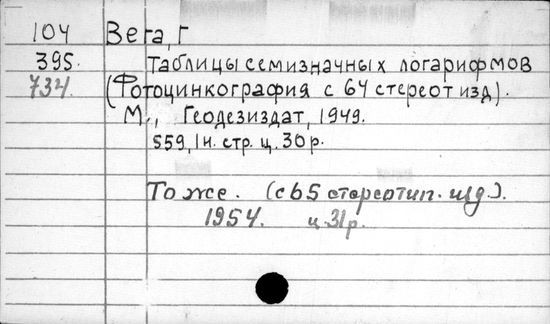 104 Вега, Г
395. Таблицы семизначных логарифмов
734. (Фотоцинкография с 64 стереот изд).
М., Геодезиздат, 1949.
559, 1 н. стр. ц. 30 р.
То же. (с 65 стереотип. изд.).
1954. ц 31 р.